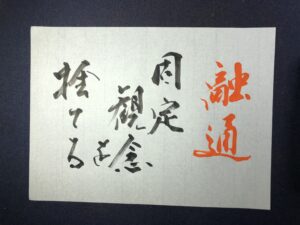 融通
固定
観念を
捨てる